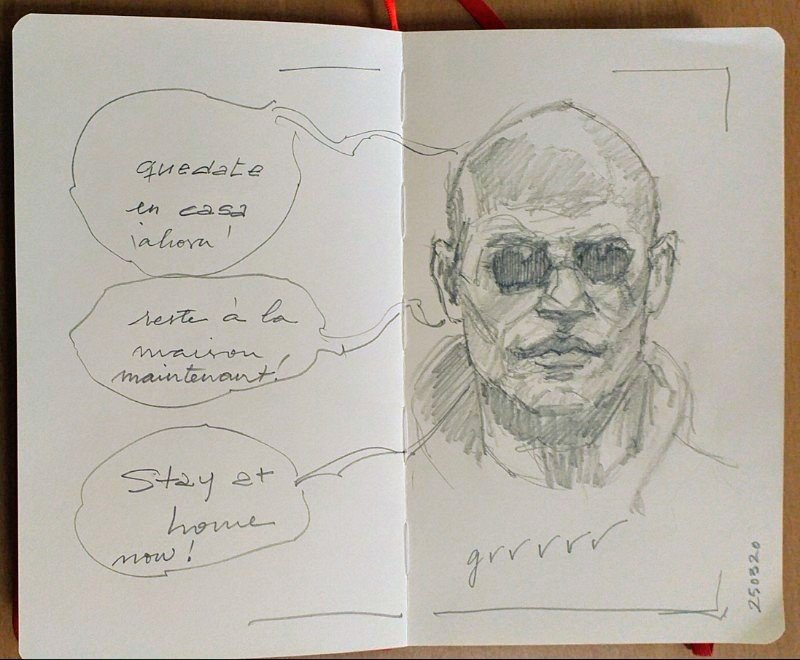 quedate
en casa
¡ahora!
reste à la
maison
maintenant!
Stay at
home
now!
grrrrr
250320